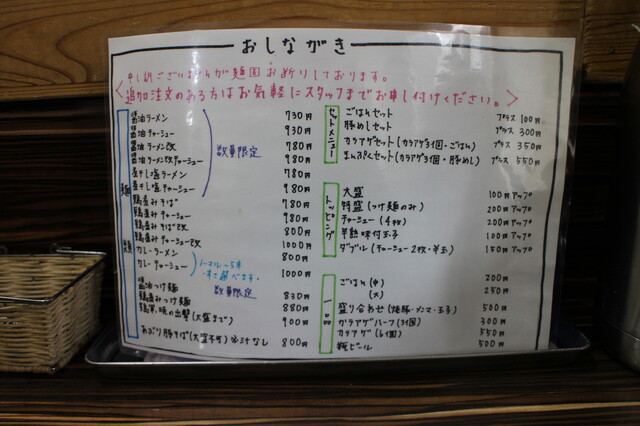 おしながき
申し訳ございませんが麺固お断りしております。
＜追加注文のある方はお気軽にスタッフまでお申し付けください。＞
麺類
醤油ラーメン 730円
醤油チャーシュー 930円
醤油ラーメン改 780円
醤油ラーメン改チャーシュー 980円
数量限定
煮干し塩ラーメン 780円
煮干し塩チャーシュー 980円
鶏産みそば 780円
鶏産みチャーシュー 980円
鶏産みそば改 800円
鶏産みチャーシュー改 1000円
カレーラーメン 800円
カレーチャーシュー 1000円
醤油つけ麺 830円
数量限定
鶏産みつけ麺 880円
(大盛まで) 900円
あぶり豚そば(大盛不可)※汁なし 800円
セットメニュー
ごはんセット プラス 100円
豚めしセット プラス 300円
カラアゲセット(カラアゲ3個・ごはん) プラス 350円
まんぷくセット(カラアゲ3個・豚めし) プラス 550円
トッピング
大盛 100円アップ
特盛(つけ麺のみ) 200円アップ
チャーシュー(4枚) 200円アップ
半熟味付玉子 100円アップ
ダブル(チャーシュー2枚・半玉) 150円アップ
一品
ごはん(中) 200円
(大) 250円
盛り合わせ(焼豚・メンマ・玉子) 500円
カラアゲハーフ(3個) 300円
カラアゲ(6個) 550円
瓶ビール 500円